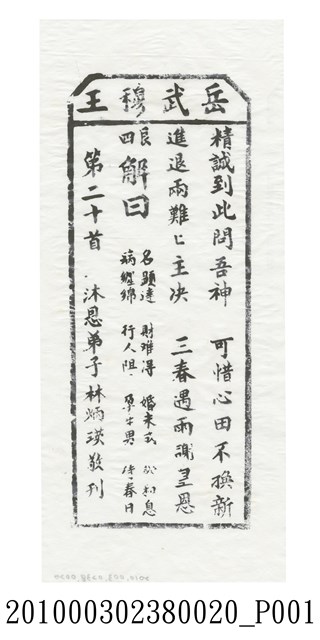 岳武穆王
精誠到此問吾神　可惜心田不換新
進退兩難ヒ主决　三春遇雨謝聖恩
艮四 解曰
名顯達　財难得　婚未成　訟和息
病纏綿　行人阻　孕生男　待春日
第二十首　沐恩弟子林炳瑛敬刊
2010.003.0238.0020
201000302380020_P001